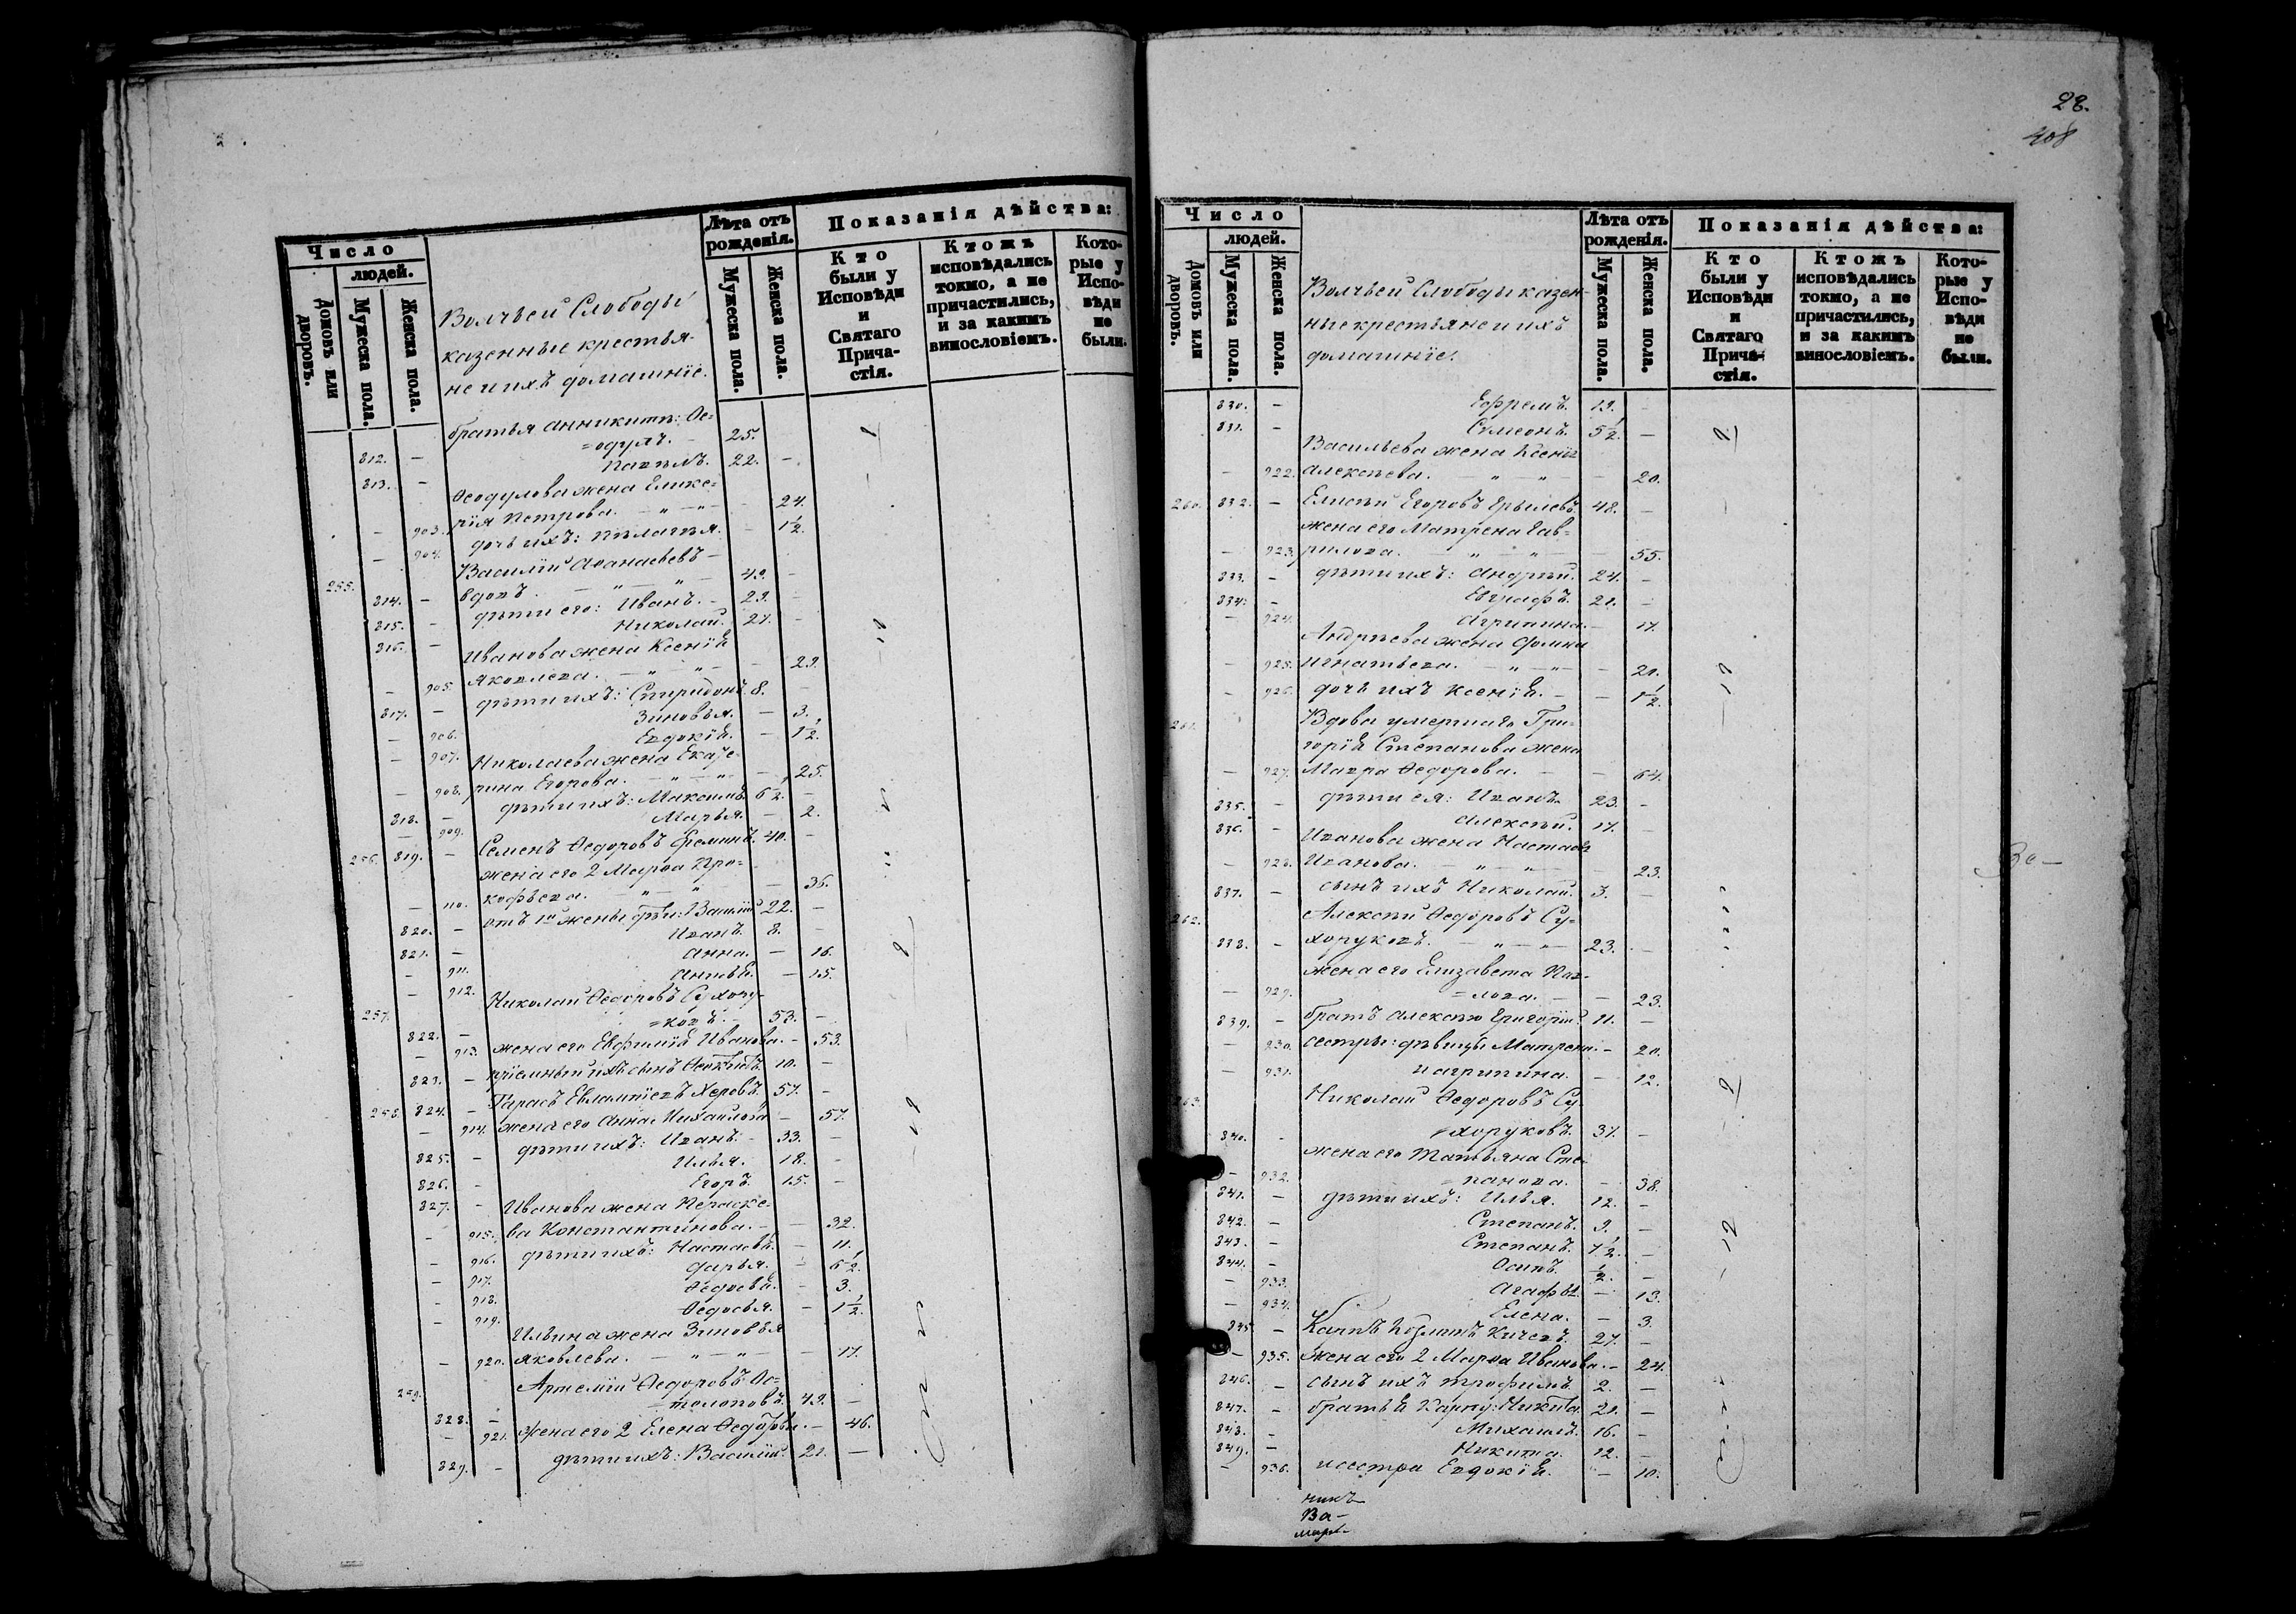 Число
людей.
Домовъ или дворовъ.
Мужеска пола.
Женска пола.
Волчьей Слободы
казенные крестья-
не и ихъ домашніе.
Лѣта отъ рожденія.
Мужеска пола.
Женска пола.
Показанія дѣйства:
Кто были у Исповѣди и Святаго Прича-стія.
Ктожъ исповѣдались токмо, а не причастились, и за какимъ винословіемъ.
Кото-рые у Испо-вѣди не были.
братья Анникиты: Ѳе=
812. — =одулъ. — 25. —
813. — Павелъ. 22. —
Ѳеодулова жена Глике-
— 903. рія Петрова. — „ — „ — — 24.
— 904. дочь ихъ: Пелагея. — 1½.
255. Василій Аѳанасьевъ —
814. — вдовъ. — „ — „ — 49. —
815. — дѣти его: Иванъ. — 29. —
816. — Николай. 27. —
Иванова жена Ксенія
— 905. Яковлева. — „ — „ — — 29.
817. — дѣти ихъ: Спиридонъ. 8. —
— 906. Зиновья. — 3.
— 907. Евдокія. — 1½.
Николаева жена Екате-
— 908. рина Егорова. — „ — „ — — 25.
818. — дѣти ихъ: Максимъ. 6½. —
— 909. Марья. — 2.
256. 819. — Семенъ Ѳедоровъ 40. —
жена его 2 Марѳа Про-
— 910. кофьева. „ — „ — — 36.
820. — отъ 1й жены дѣти: Василій 22. —
821. — Иванъ. 8. —
— 911. Анна. — 16.
— 912. — 15.
257. Николай Ѳедоровъ Сухору-
822. — =ковъ. — 53. —
— 913. жена его Евфимія Иванова. — 53.
823. — пріемный ихъ сынъ 10. —
258. 824. — Тарасъ Евлампіевъ 57. —
— 914. жена его Анна Михайлова — 57.
825. — дѣти ихъ: Иванъ. — 33. —
826. — Илья. 18. —
827. — Егоръ. 15. —
Иванова жена Параске-
— 915. ва Константинова. — — 32.
— 916. дѣти ихъ: Настасья. — 11.
— 917. Дарья. — 6½.
— 918. Ѳедосья. — 3.
— 919. Ѳедосья. — 1½.
Ильина жена Зиновья
— 920. Яковлева. — „ — „ — — 17.
259. Артемій Ѳедоровъ
828. — 49. —
— 921. жена его 2 Елена Ѳедорова. — 46.
829. — дѣти ихъ: Василій. 21. —
28.
408
Число
людей.
Домовъ или дворовъ.
Мужеска пола.
Женска пола.
Волчьей Слободы казен-
ные крестьяне и ихъ
домашніе.
Лѣта отъ рожденія.
Мужеска пола.
Женска пола.
Показанія дѣйства:
Кто были у Исповѣди и Святаго Прича-стія.
Ктожъ исповѣдались токмо, а не причастились, и за какимъ винословіемъ.
Кото-рые у Испо-вѣди не были.
830. — Ефремъ. 19. —
831. — Сѵмеонъ. 5½. —
Васильева жена Ксенія
— 922. Алексѣева. — „ — „ — — 20.
260. 832. — Елисѣй Егоровъ 48. —
жена его Матрена Гав-
— 923. рилова. — „ — „ — — 55.
833. — дѣти ихъ: Андрей. 24. —
834. — Евграфъ. 21. —
— 924. Агрипина. — 17.
Андреева жена Домна
— 925. Игнатьева. — „ — „ — — 21.
— 926. дочь ихъ Ксенія. — — 1½.
261. Вдова умершаго Гри-
горія Степанова жена
— 927. Мавра Ѳедорова. — — 64.
835. — дѣти ея: Иванъ. 23. —
836. — Алексѣй. 17. —
Иванова жена Настасья
— 928. Иванова. — „ — „ — — 23.
837. — сынъ ихъ Николай. 3. —
262. Алексѣй Ѳедоровъ Су=
838. — хоруковъ. — „ — „ — 23. —
жена его Елизавета Пав-
— 929. =лова. — — 23.
839. — братъ Алексѣю Григорій. 11. —
— 930. сестры: дѣвицы Матрена. — 20.
— 931. и Агрипина. — 12.
263. Николай Ѳедоровъ Су-
840. — =хоруковъ. 37. —
жена его Татьяна Сте-
— 932. =панова. — 38.
841. — дѣти ихъ: Илья. 12. —
842. — Степанъ. 9. —
843. — Степанъ. 7½. —
844. — Осипъ. ½. —
— 933. Агафья. — 13.
— 934. Елена. — 3.
845. — 27. —
— 935. жена его 2 Марѳа Иванова. — 24.
846. — сынъ ихъ Трофимъ. 2. —
847. — братья Карпу: Никита. 21. —
848. — Михаилъ. 16. —
849. — Никита. 12. —
— 936. и сестра Евдокія. — 10.
Ва-